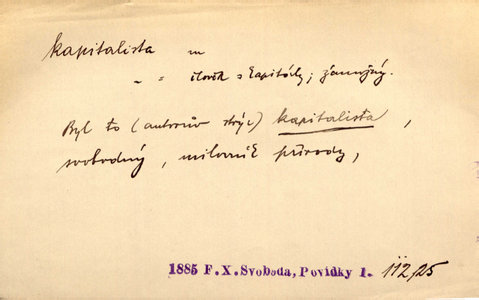 kapitalista m
" " člověk s kapitály; zámožný.
Byl to (autorův strýc) kapitalista,
svobodný, milovník přírody,
1885 F. X. Svoboda, Povídky 1. 112,25